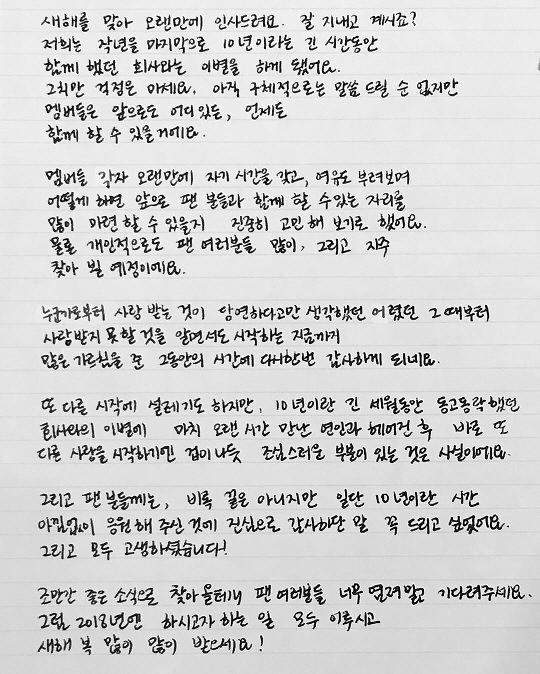 새해를 맞아 오랜만에 인사드려요. 잘 지내고 계시죠?
저희는 작년을 마지막으로 10년이라는 긴 시간동안
함께 했던 회사와는 이별을 하게 됐어요.
그치만 걱정은 마세요, 아직 구체적으로는 말씀 드릴 순 없지만
멤버들은 앞으로도 어디있든, 언제든
함께 할 수 있을거에요.
멤버들 각자 오랜만에 자기 시간을 갖고, 여유도 부려보며
어떻게 하면 앞으로 팬 분들과 함께 할 수 있는 자리를
많이 마련 할 수 있을지 진중히 고민 해 보기로 했어요.
물론 개인적으로도 팬 여러분들 많이, 그리고 자주
찾아 뵐 예정이에요.
누군가로부터 사랑 받는 것이 당연하다고만 생각했던 어렸던 그 때부터
사랑받지 못할 것을 알면서도 시작하는 지금까지
많은 가르침을 준 그동안의 시간에 다시한번 감사하게 되네요.
또 다른 시작에 설레기도 하지만, 10년이란 긴 세월동안 동고동락했던
회사와의 이별에 마치 오랜 시간 만난 연인과 헤어진 후 바로 또
다른 사랑을 시작하기엔 겁이 나듯 조심스러운 부분이 있는 것은 사실이에요.
그리고 팬 분들께는, 비록 끝은 아니지만 일단 10년이란 시간
아낌없이 응원해 주신 것에 진심으로 감사하단 말 꼭 드리고 싶었어요.
그리고 모두 고생하셨습니다!
조만간 좋은 소식으로 찾아 올테니 팬 여러분들 너무 염려말고 기다려주세요.
그럼 2018년엔 하시고자 하는 일 모두 이루시고
새해 복 많이 많이 받으세요!